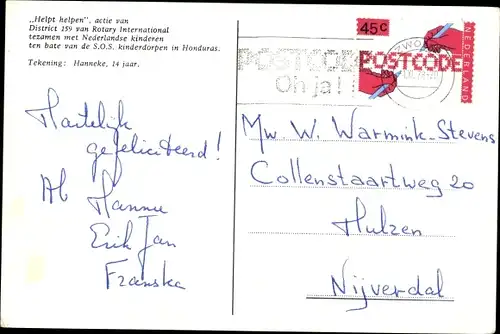 „Helpt helpen”, actie van
District 159 van Rotary International
tezamen met Nederlandse kinderen
ten bate van de S.O.S. kinderdorpen in Honduras.
Tekening: Hanneke, 14 jaar.
Hartelijk
gefeliciteerd!
Ab
Hannie
Erik Jan
Franska
45c
POSTCODE
NEDERLAND
POSTCODE
Oh ja!
ZWO
Mw. W. Warmink-Stevens
Collenstaartweg 20
Hulzen
Nijverdal